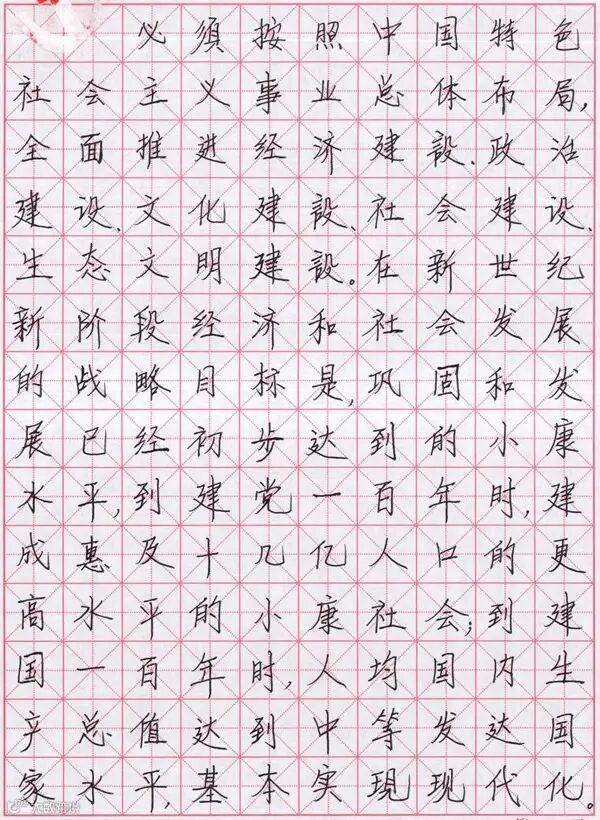 必须按照中国特色
社会主义事业总体布局,
全面推进经济建設、政治
建设、文化建設、社会建设、
生态文明建設。在新世纪
新阶段经济和社会发展
的战略目标是,巩固和发
展已经初步达到的小康
水平,到建党一百年时,建
成惠及十几亿人口的更
高水平的小康社会;到建
国一百年时,人均国内生
产总值达到中等发达国
家水平,基本实現现代化。